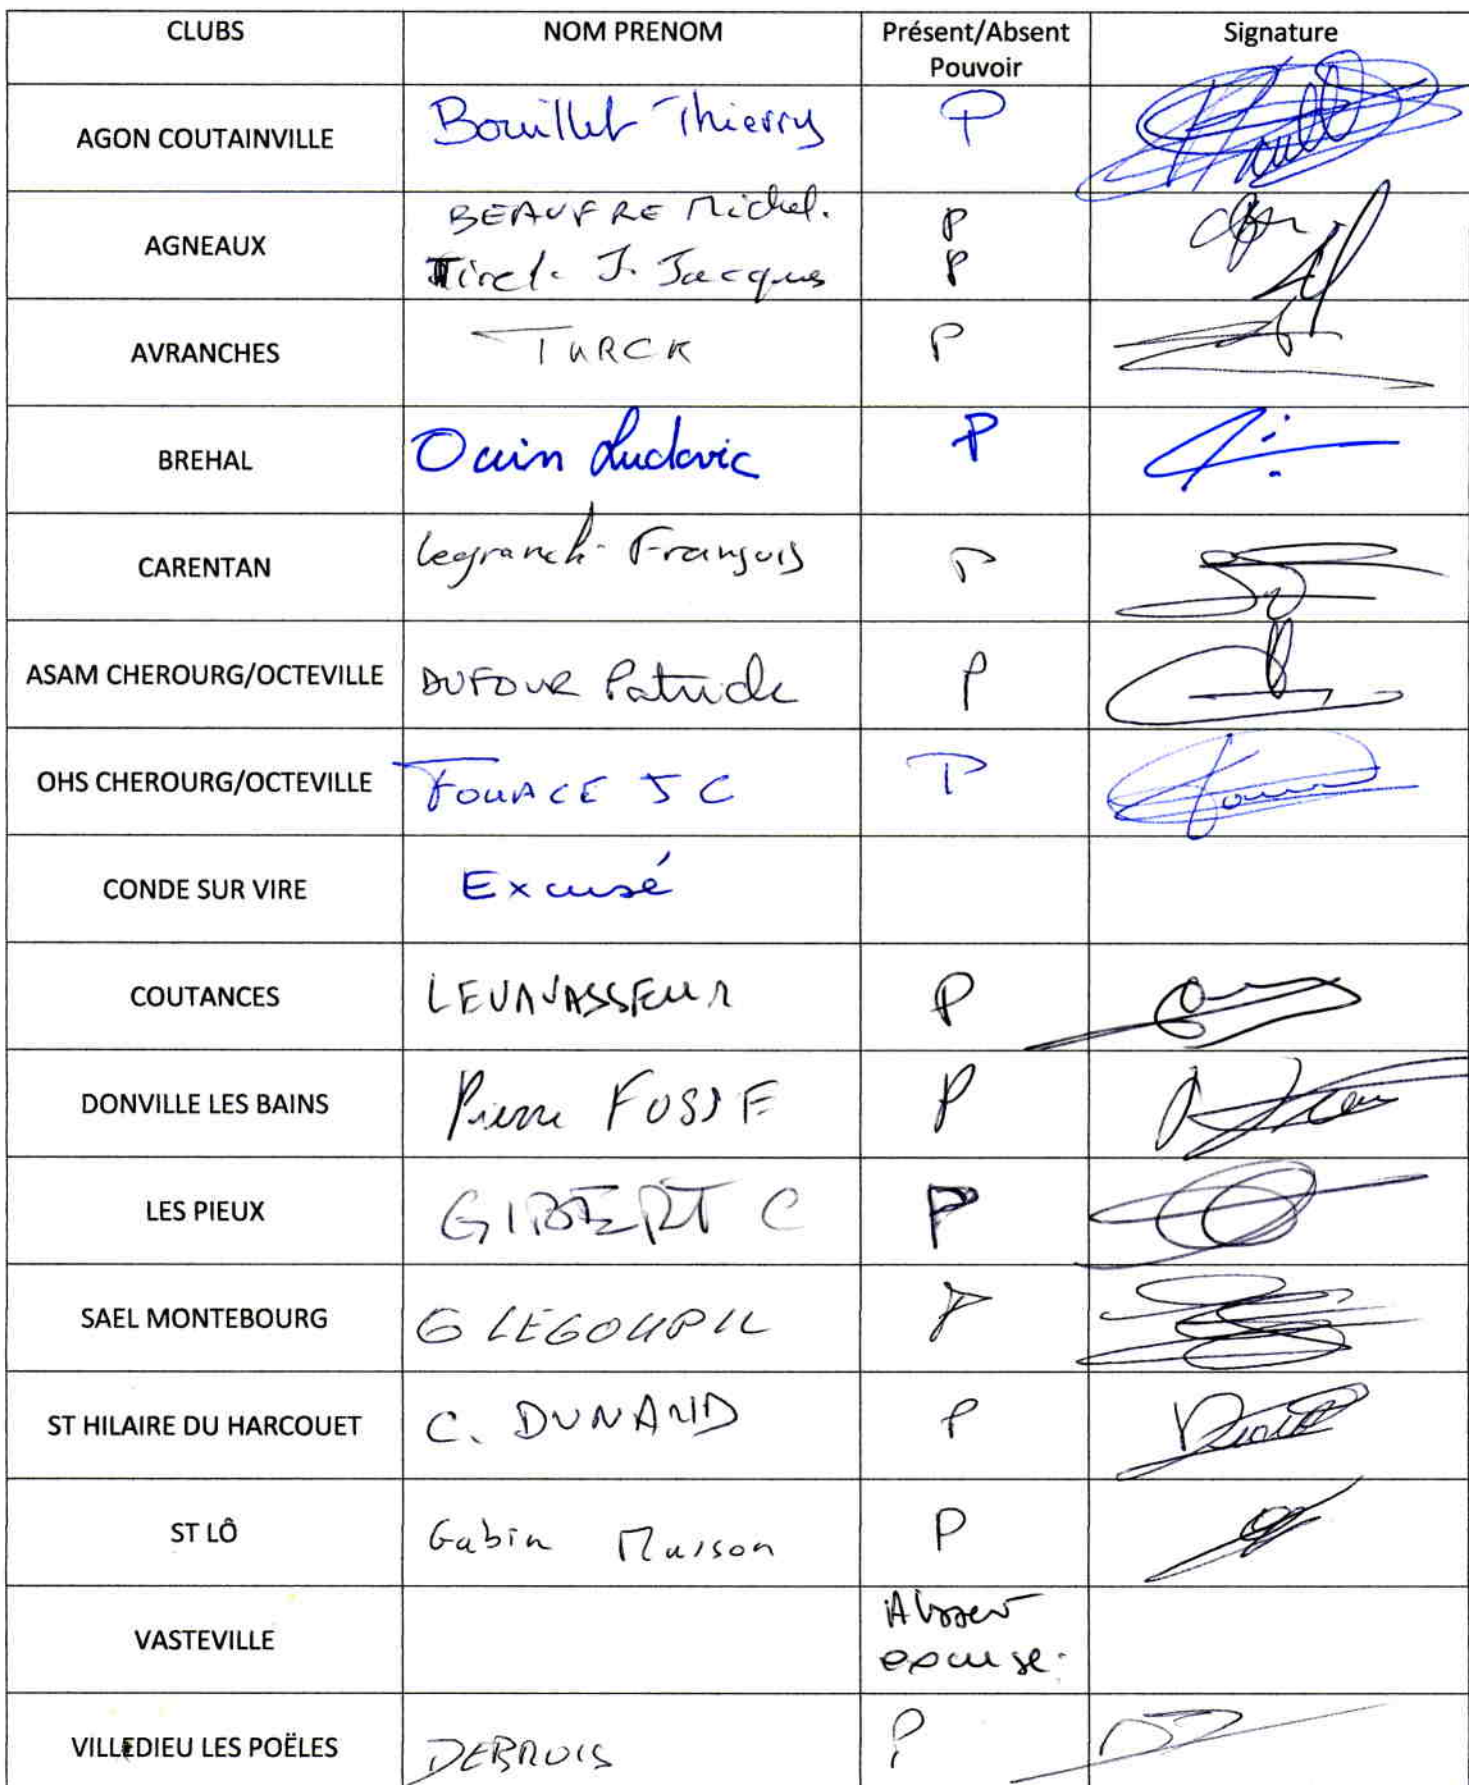 CLUBS NOM PRENOM Présent/Absent Signature
Pouvoir
AGON COUTAINVILLE Bouillet Thierry P
BEAUFRE Michel. P
AGNEAUX
Tirel. J. Jacques P
AVRANCHES TURCK P
BREHAL Ouin Ludovic P
CARENTAN François P
ASAM CHEROURG/OCTEVILLE DUFOUR Patrick P
OHS CHEROURG/OCTEVILLE FOUACE JC P
CONDE SUR VIRE Excusé
COUTANCES LEVAVASSEUR P
DONVILLE LES BAINS Pierre FOSSE P
LES PIEUX GIBERT C P
SAEL MONTEBOURG G LEGOUPIL P
ST HILAIRE DU HARCOUET C. DUNAND P
ST LÔ Gabin P
Absent
VASTEVILLE
excuse.
VILLEDIEU LES POËLES P